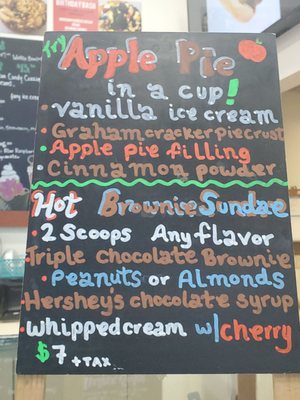 BIRTHDAY BASH
Try Apple Pie
in a cup!
• vanilla ice cream
• Graham cracker Pie Crust
• Apple pie filling
• Cinnamon powder
Hot Brownie Sundae
• 2 Scoops Any flavor
• Triple Chocolate Brownie
• Peanuts or Almonds
• Hersheys chocolate syrup
• whipped cream w/ cherry
$7 + TAX